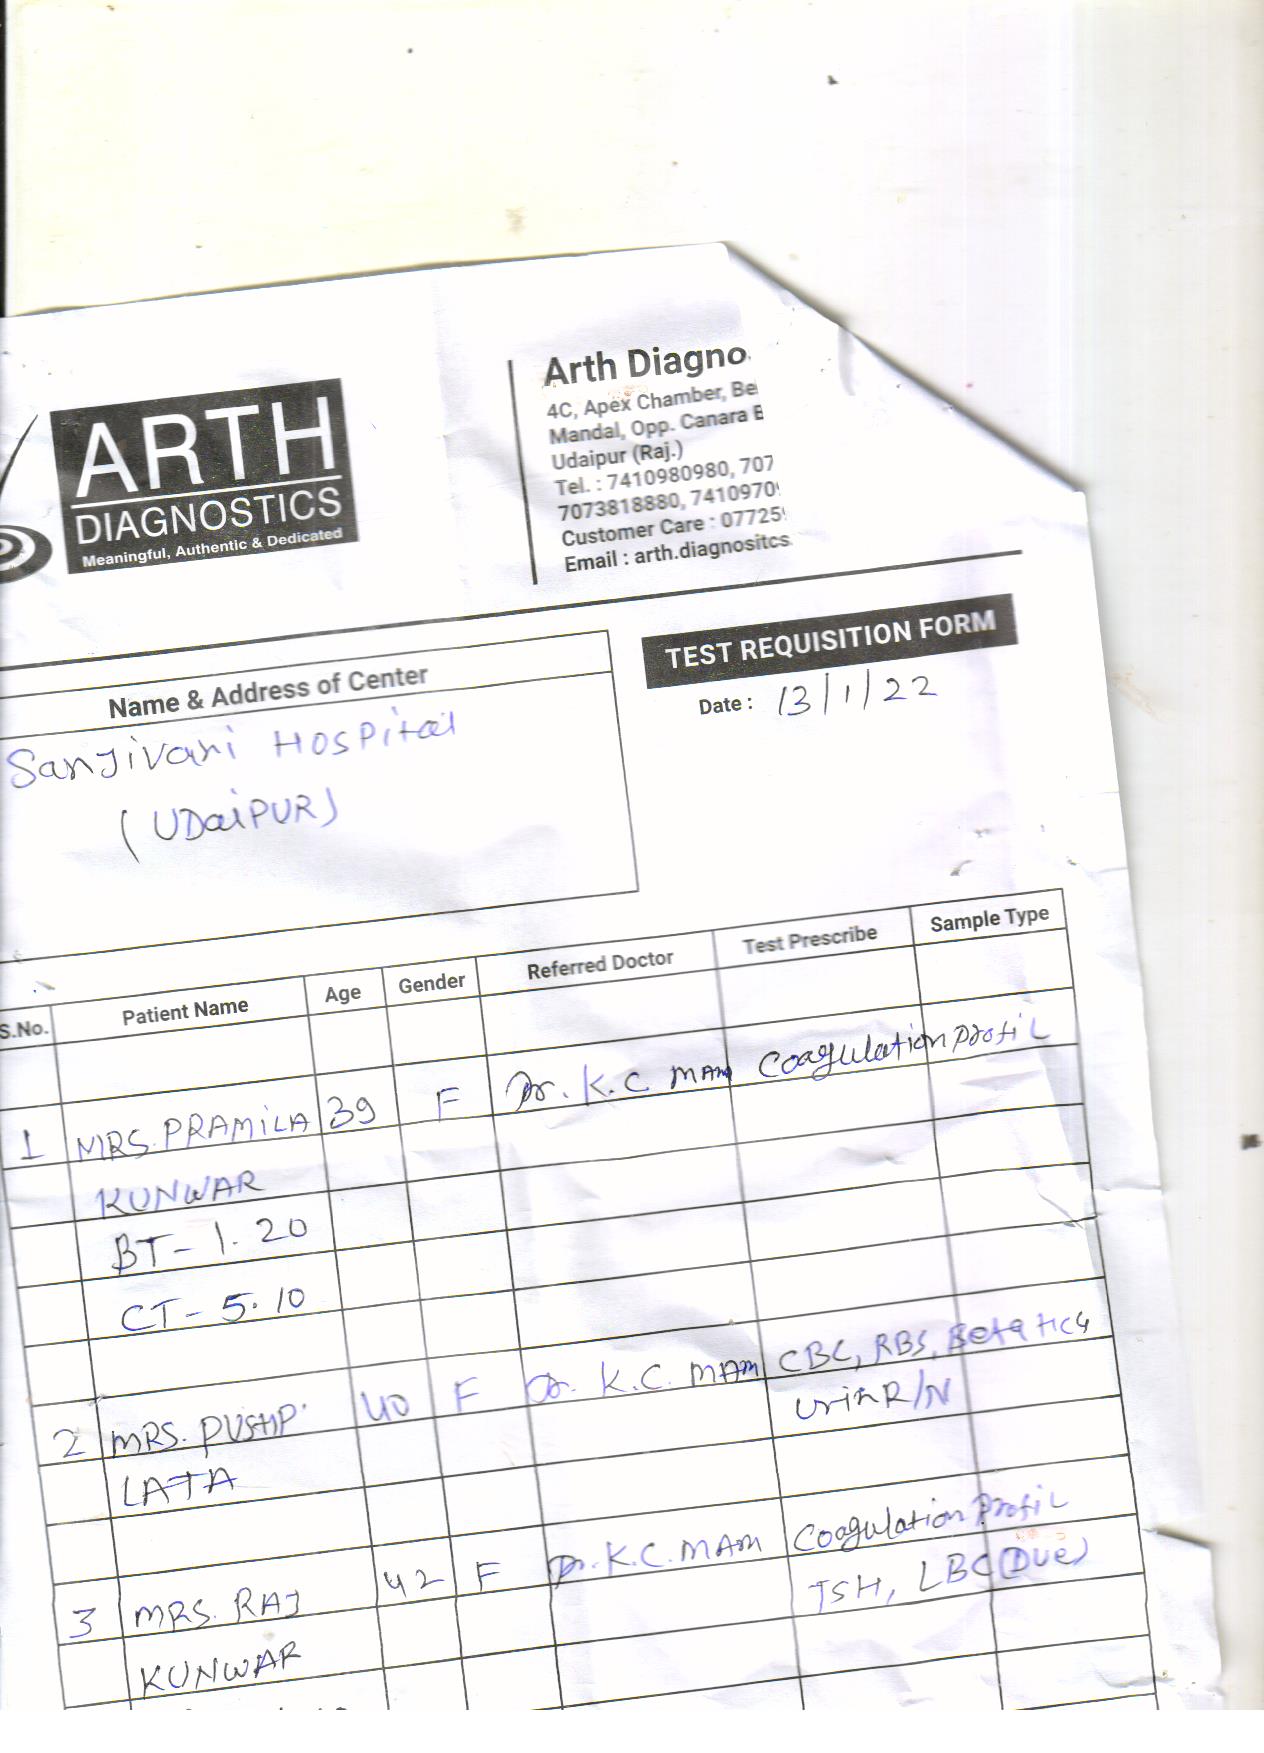 ARTH
DIAGNOSTICS
Meaningful, Authentic & Dedicated
Arth Diagno
4C, Apex Chamber, Be
Mandal, Opp. Canara B
Udaipur (Raj.)
Tel. : 7410980980, 707
7073818880, 7410970
Customer Care : 07725
Email : arth.diagnositcs
TEST REQUISITION FORM
Date : 13/1/22
Name & Address of Center
Sanjivani HOSPital
(UDaiPUR)
S.No. Patient Name Age Gender Referred Doctor Test Prescribe Sample Type
1 MRS. PRAMiLA 39 F Dr. K.C MAM Coagulation Profil
KUNWAR
BT - 1.20
CT - 5.10
2 MRS. PUSHP 40 F Dr. K.C. MAM CBC, RBS, Beta HCG
LATA UrinR/N
3 MRS. RAJ 42 F Dr. K.C. MAM Coagulation Profil
KUNWAR TSH, LBC (Due)